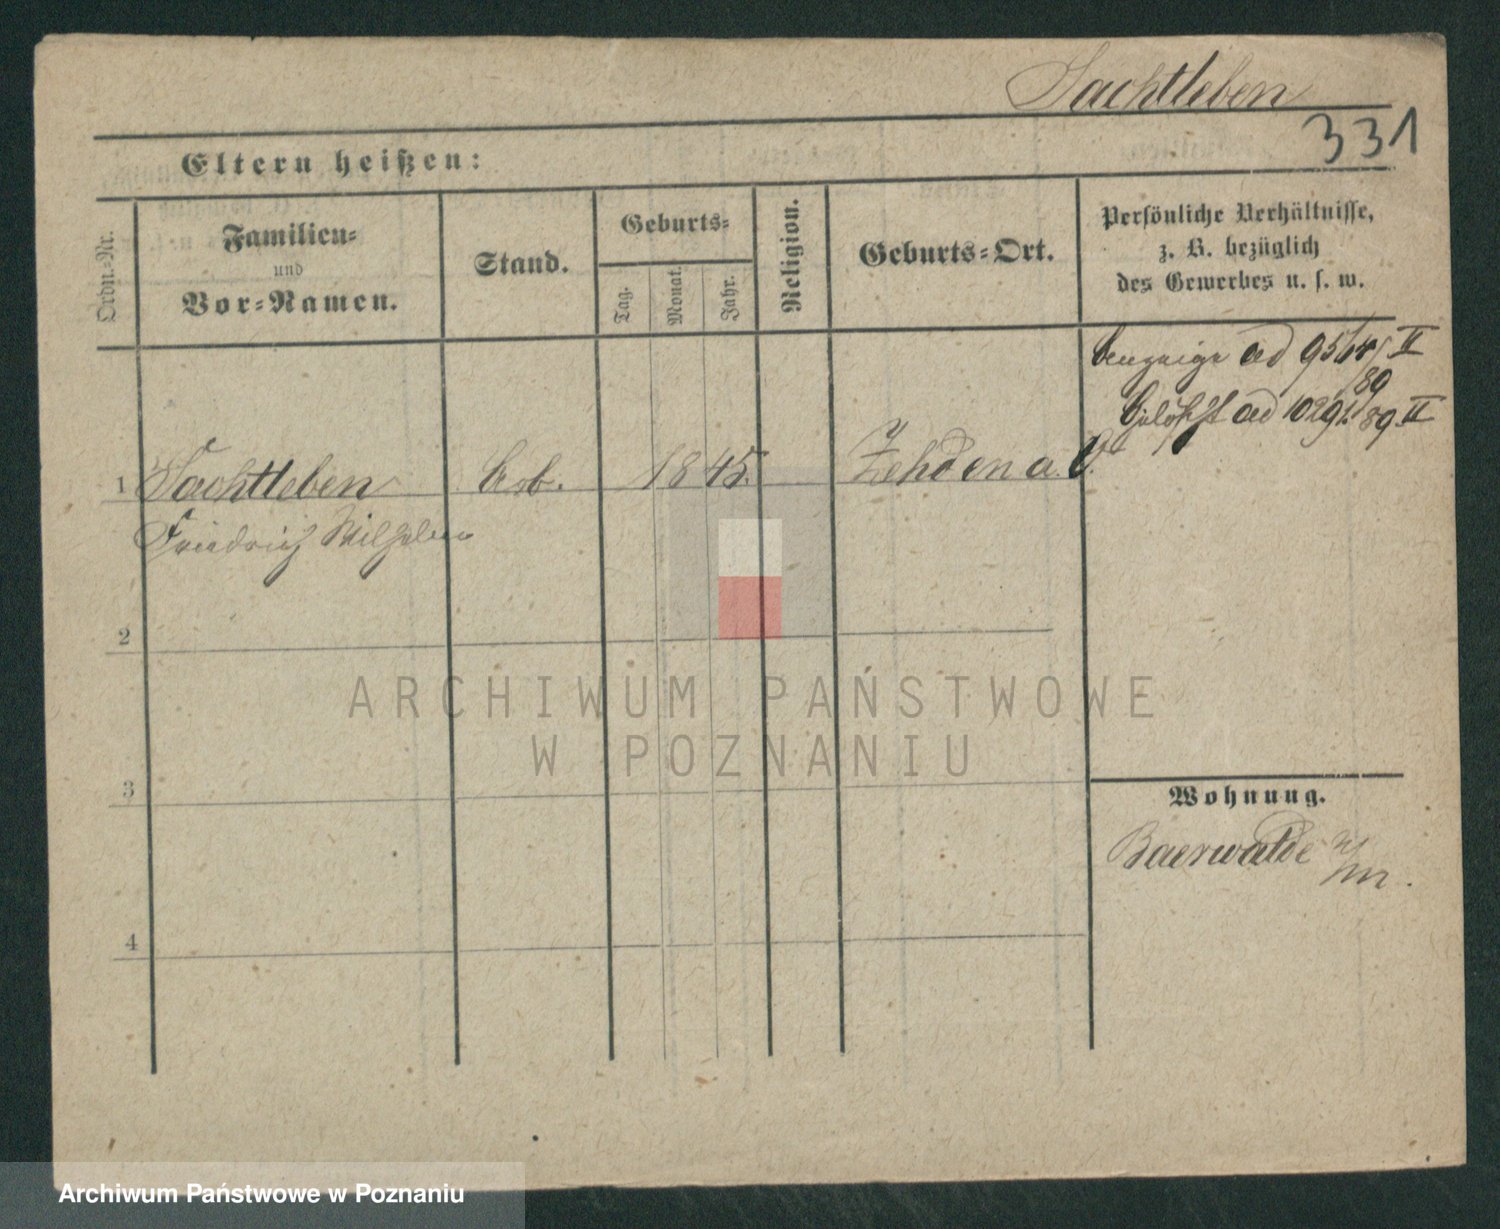 Sachtleben
331
Eltern heißen:
Ordn.-Nr.
Familien-
und
Vor-Namen.
Stand.
Geburts-
Tag.
Monat.
Jahr.
Religion.
Geburts-Ort.
Persönliche Verhältnisse,
z. B. bezüglich
des Gewerbes u. s. w.
ad 9564/89 II
ad 10291/89 II
1 Sachtleben Arb. 1845. Zehden a. O.
Friedrich Wilhelm
2
3
4
Wohnung.
Baerwalde N/M.
ARCHIWUM PAŃSTWOWE
W POZNANIU
Archiwum Państwowe w Poznaniu